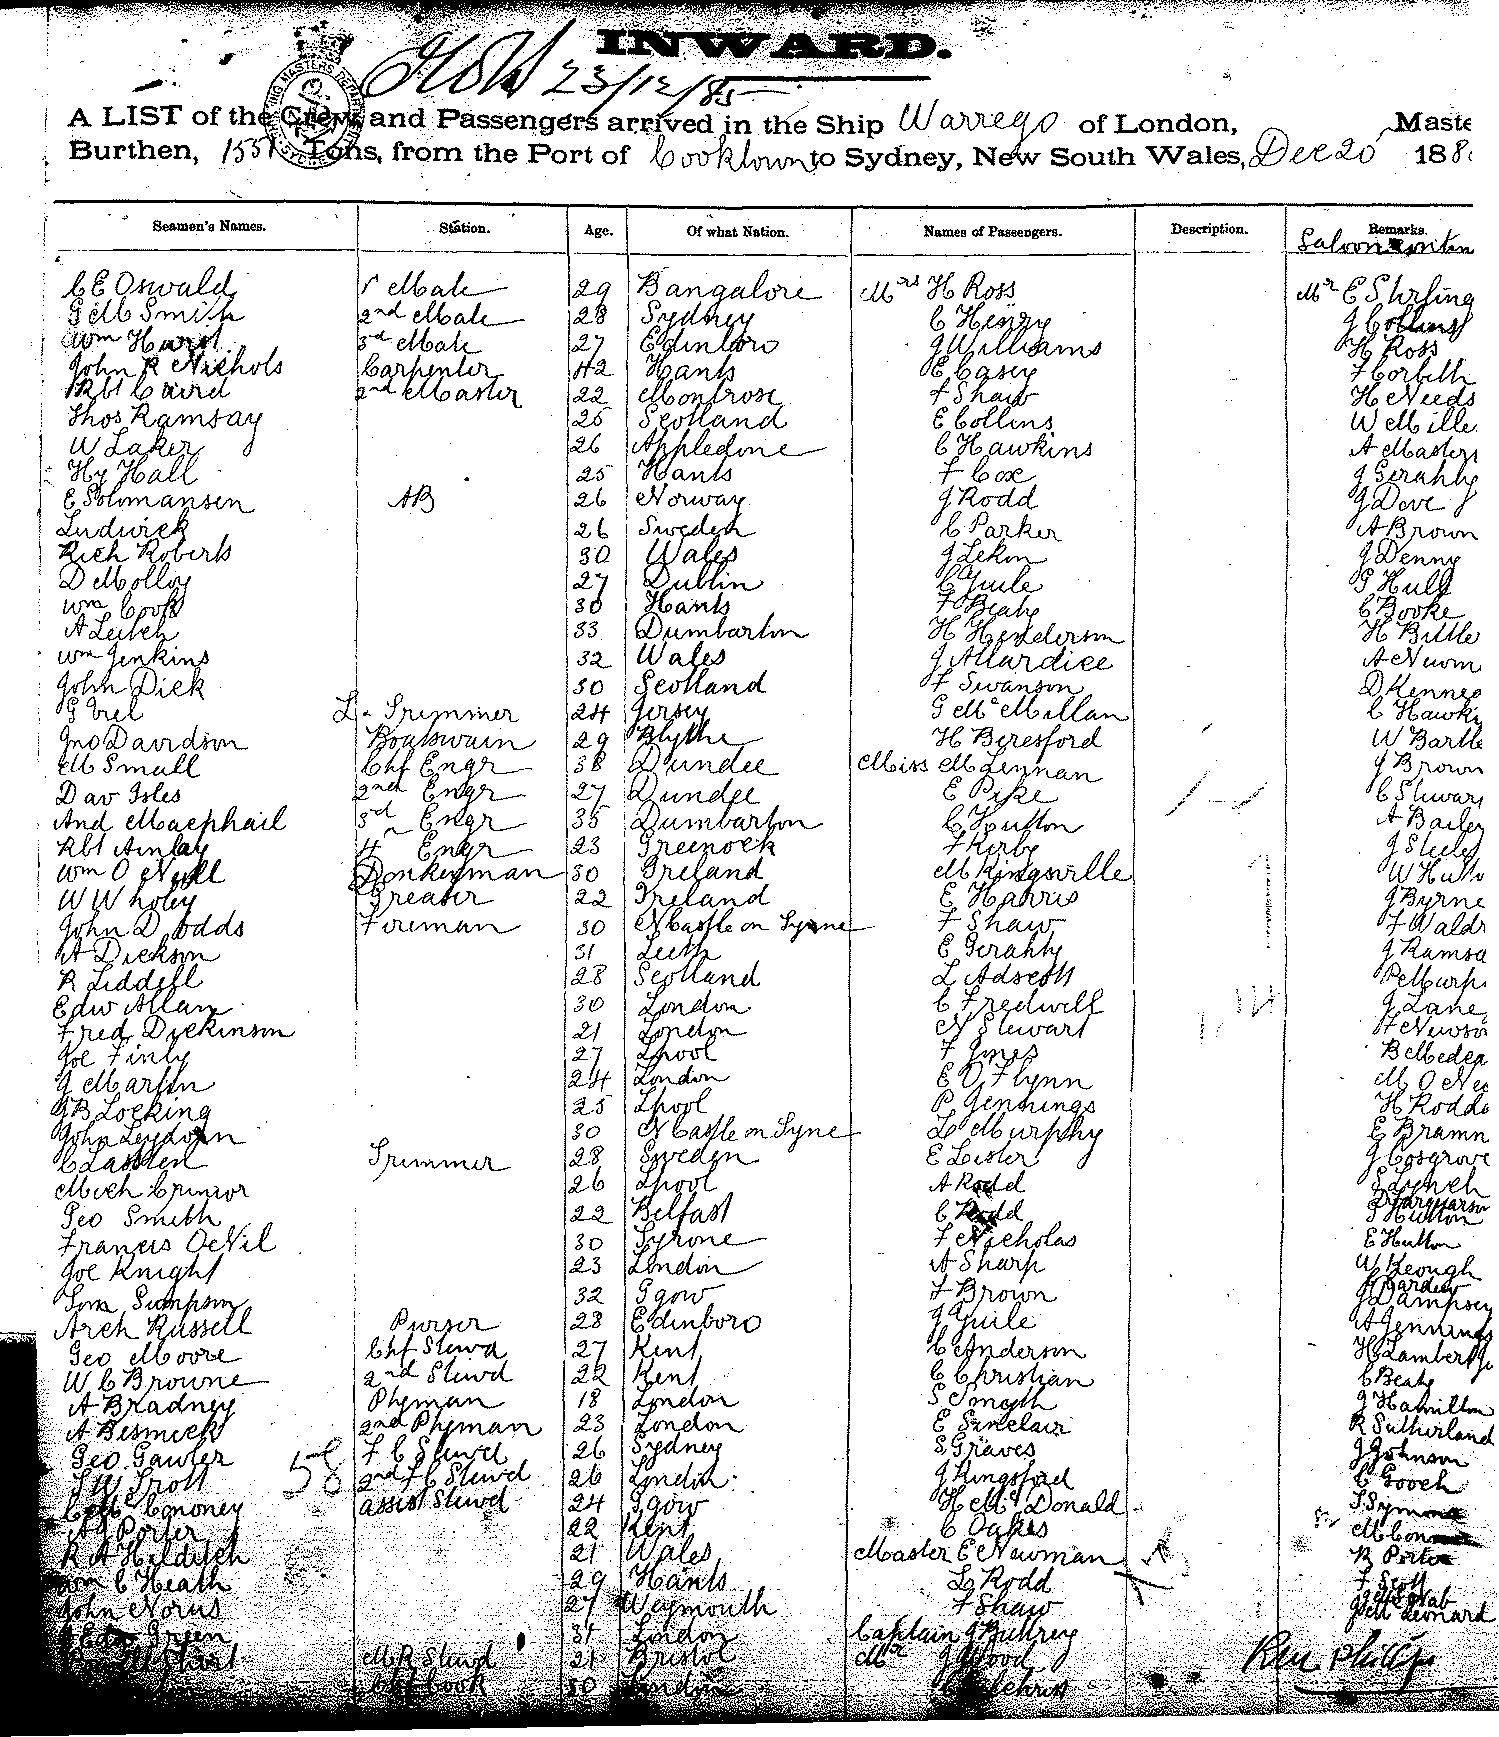 INWARD.
23/12/85
A LIST of the Crew and Passengers arrived in the Ship Warrego of London, Maste
Burthen, 1551 Tons, from the Port of Cooktown to Sydney, New South Wales, Dec 20 188
Seamen's Names. Station. Age. Of what Nation. Names of Passengers. Description. Remarks.
Saloon
C E Oswald 1st Mate 29 Bangalore Mrs H Ross Mr E Stirling
G M Smith 2nd Mate 28 Sydney C Henry J Collins
Wm Hurst 3rd Mate 27 Edinboro J Williams H Ross
John R Nichols Carpenter 42 Hants E Casey F Corbeth
Rbt Caird 2nd Master 22 Montrose F Shaw H Needs
Thos Ramsay 25 Scotland E Collins W Mille
W Laker 26 Appledone C Hawkins A Masters
Hy Hall 25 Hants F Cox J Gerahty
E Solomansen AB 26 Norway J Rodd J Dove
Ludwick 26 Sweden C Parker A Brown
Rich Roberts 30 Wales J Lekon J Denny
D Molloy 27 Dublin C Guile G Hull
Wm Cook 30 Hants F Beaty C Booke
A Leitch 33 Dumbarton H Henderson H Bittle
Wm Jenkins 32 Wales J Allardice A Newm
John Dick 30 Scotland F Swanson D Kenned
G Vrel L. Trimmer 24 Jersey G McMillan C Hawki
Jno Davidson Boatswain 29 Blythe H Beresford W Bartle
M Small Chf Engr 38 Dundee Miss M Lennan J Brown
Dav Isles 2nd Engr 27 Dundee E Pike C Stuwart
And Macphail 3rd Engr 35 Dumbarton C Hutton A Bailey
Rbt Ainlay 4 Engr 23 Greenock F Kirby J Steele
Wm O Neill Donkeyman 30 Ireland M Kingsville W Hutt
W Wholey Greaser 22 Ireland E Harris J Byrne
John Dodds Fireman 30 NCastle on Tyne F Shaw F Waldr
A Dickson 31 Leith E Gerahty J Ramsa
R Liddell 28 Scotland L Adsett P Murp
Edw Allan 30 London C Fredwell J Lane
Fred Dickinson 21 London N Stewart F Newso
Joe Finly 27 Lpool F Jones B Medea
J Martin 24 London E O Flynn M O Nei
J B Locking 25 Lpool P Jennings H Rodd
John Leydon 30 NCastle on Tyne L Murphy E Bramn
C Lassten Trimmer 28 Sweden E Lester J Cosgrove
Mich Crimior 26 Lpool A Rodd S Lynch
D Farquarson
Geo Smith 22 Belfast C Rodd G Hutton
Francis O Neil 30 Tyrone F Nicholas E Hutton
Joe Knight 23 London A Sharp W Keough
Tom Simpson 32 Ggow F Brown J Dampsey
Arch Russell Purser 28 Edinboro J Guile A Jennings
Geo Moore Chf Stewd 27 Kent C Anderson H Lambert
W C Browne 2nd Stewd 22 Kent C Christian C Beaty
A Bradney Phyman 18 London S Smyth J Hamilton
A Besmick 2nd Phyman 23 London E Sinclair R Sutherland
Geo Gawler F C Stewd 26 Sydney S Graves J Johnson
T W Trott 58 2nd F C Stewd 26 London J Kingsford C Gooch
C Mc Cononey assist Stewd 24 Ggow H McDonald S Symons
A J Porter 22 Kent C Oakes
R A Hilditch 21 Wales Master E Newman R Porter
Wm C Heath 29 Hants L Rodd F Scott
John Norus 27 Weymouth F Shaw
Green 31 London Captain J Buttrey Leonard
M R Stewd 21 Bristol Mr J Wood Rev Phillips
Chf Cook 30 London Gilchrist